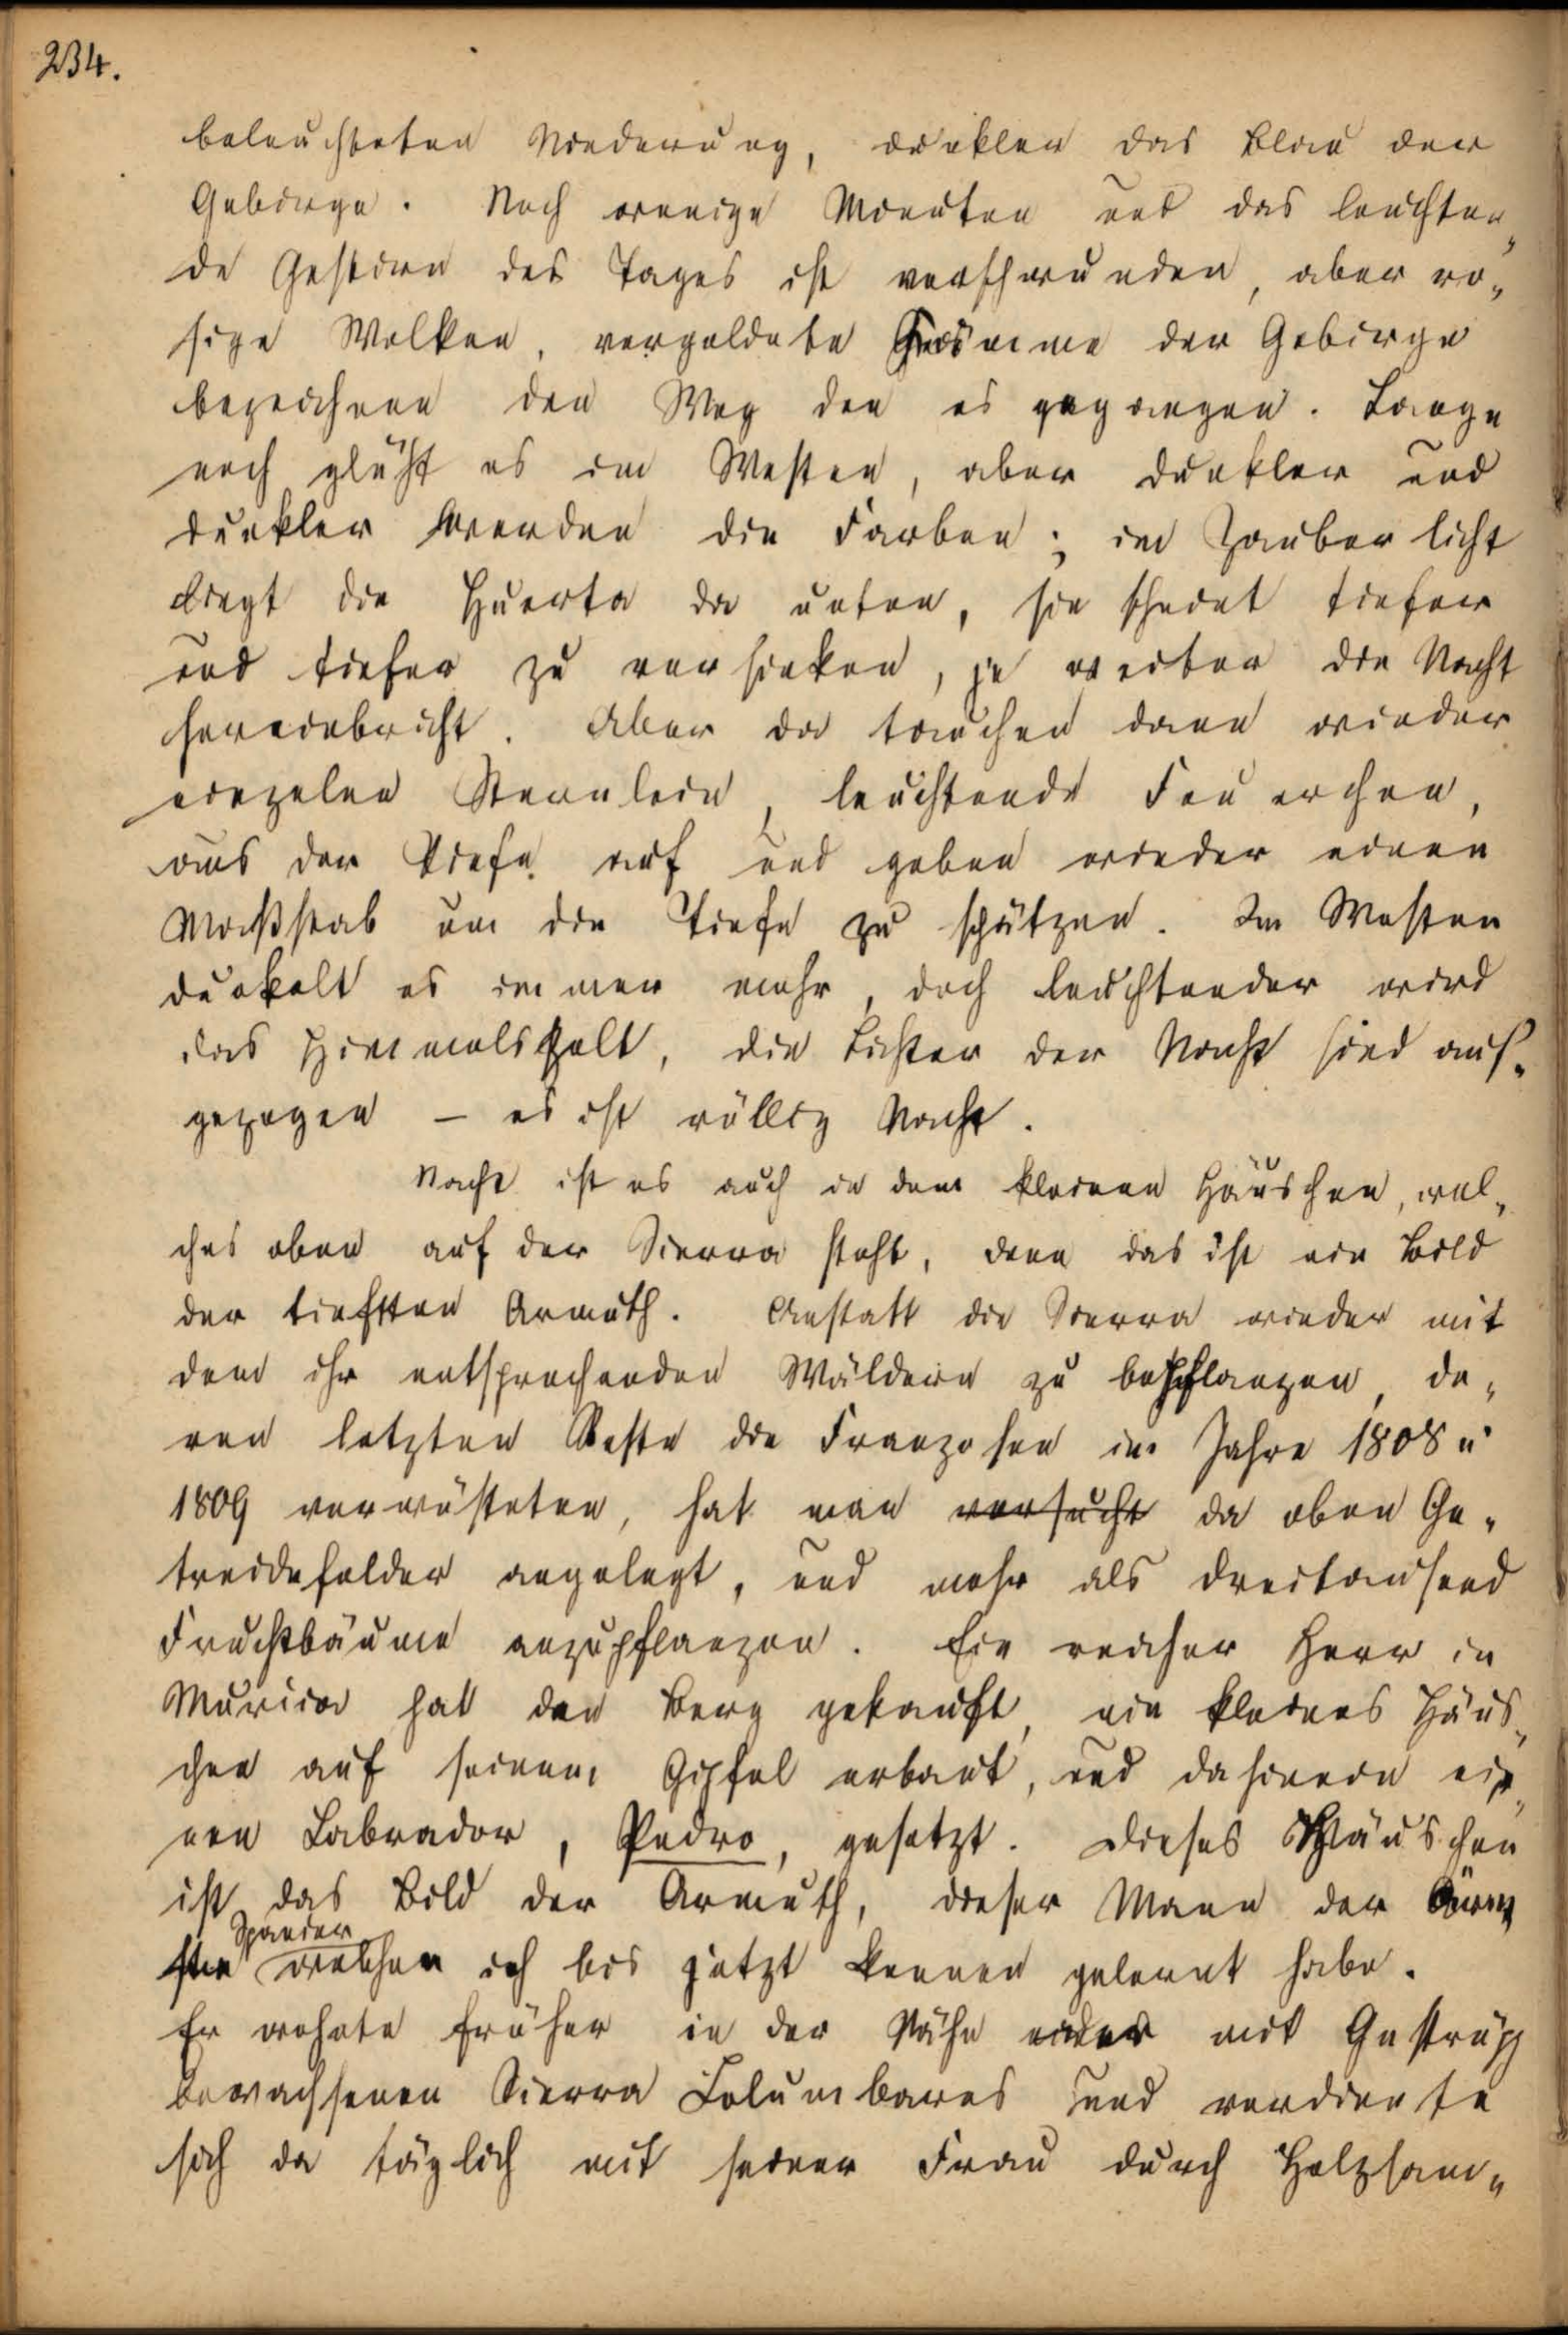 234.
beleuchteten Niederung, dunkler das Blau der
Gebirge. Noch wenige Minuten und das leuchten„
de Gestirn des Tages ist verschwunden, aber ro„
sige Wolken, vergoldete Gesimme der Gebirge
bezeichnen den Weg den es gegangen. Lange
noch glüht es im Westen, aber dunkler und
dunkler werden die Farben; im Zauberlicht
liegt die Huerta da unten, sie scheint tiefer
und tiefer zu versinken, je weiter die Nacht
hereinbricht. Aber da tauchen dann wieder
einzelne Sternlein, leuchtende Feuerchen,
aus der Tiefe auf und geben wieder einen
Maßstab um die Tiefe zu schätzen. Im Westen
dunkelt es immer mehr, doch leuchtender wird
das Himmelszelt, die Lichter der Nacht sind auf„
gezogen – es ist völlig Nacht.
Nacht ist es auch in dem kleinen Häuschen, wel„
ches oben auf der Sierra steht, denn das ist ein Bild
der tiefsten Armuth. Anstatt die Sierra wieder mit
den ihr entsprechenden Wäldern zu bepflanzen, de„
ren letzten Reste die Franzosen im Jahre 1808 u
1809 verwüsteten, hat man versucht da oben Ge„
treidefelder angelegt, und mehr als dreitausend
Fruchtbäume anzupflanzen. Ein reicher Herr in
Murcia hat den Berg gekauft, ein kleines Häus„
chen auf seinem Gipfel erbaut, und dahinein ei„
nen Labrador, Pedro, gesetzt. Dieses Häuschen
ist das Bild der Armuth, dieser Mann der Ärm„
Spanier
ste welchen ich bis jetzt kennen gelernt habe.
Er wohnte früher in der Nähe einer mit Gestrüpp
bewachsenen Sierra Columbares und verdiente
sich da täglich mit seiner Frau durch Holzsam„